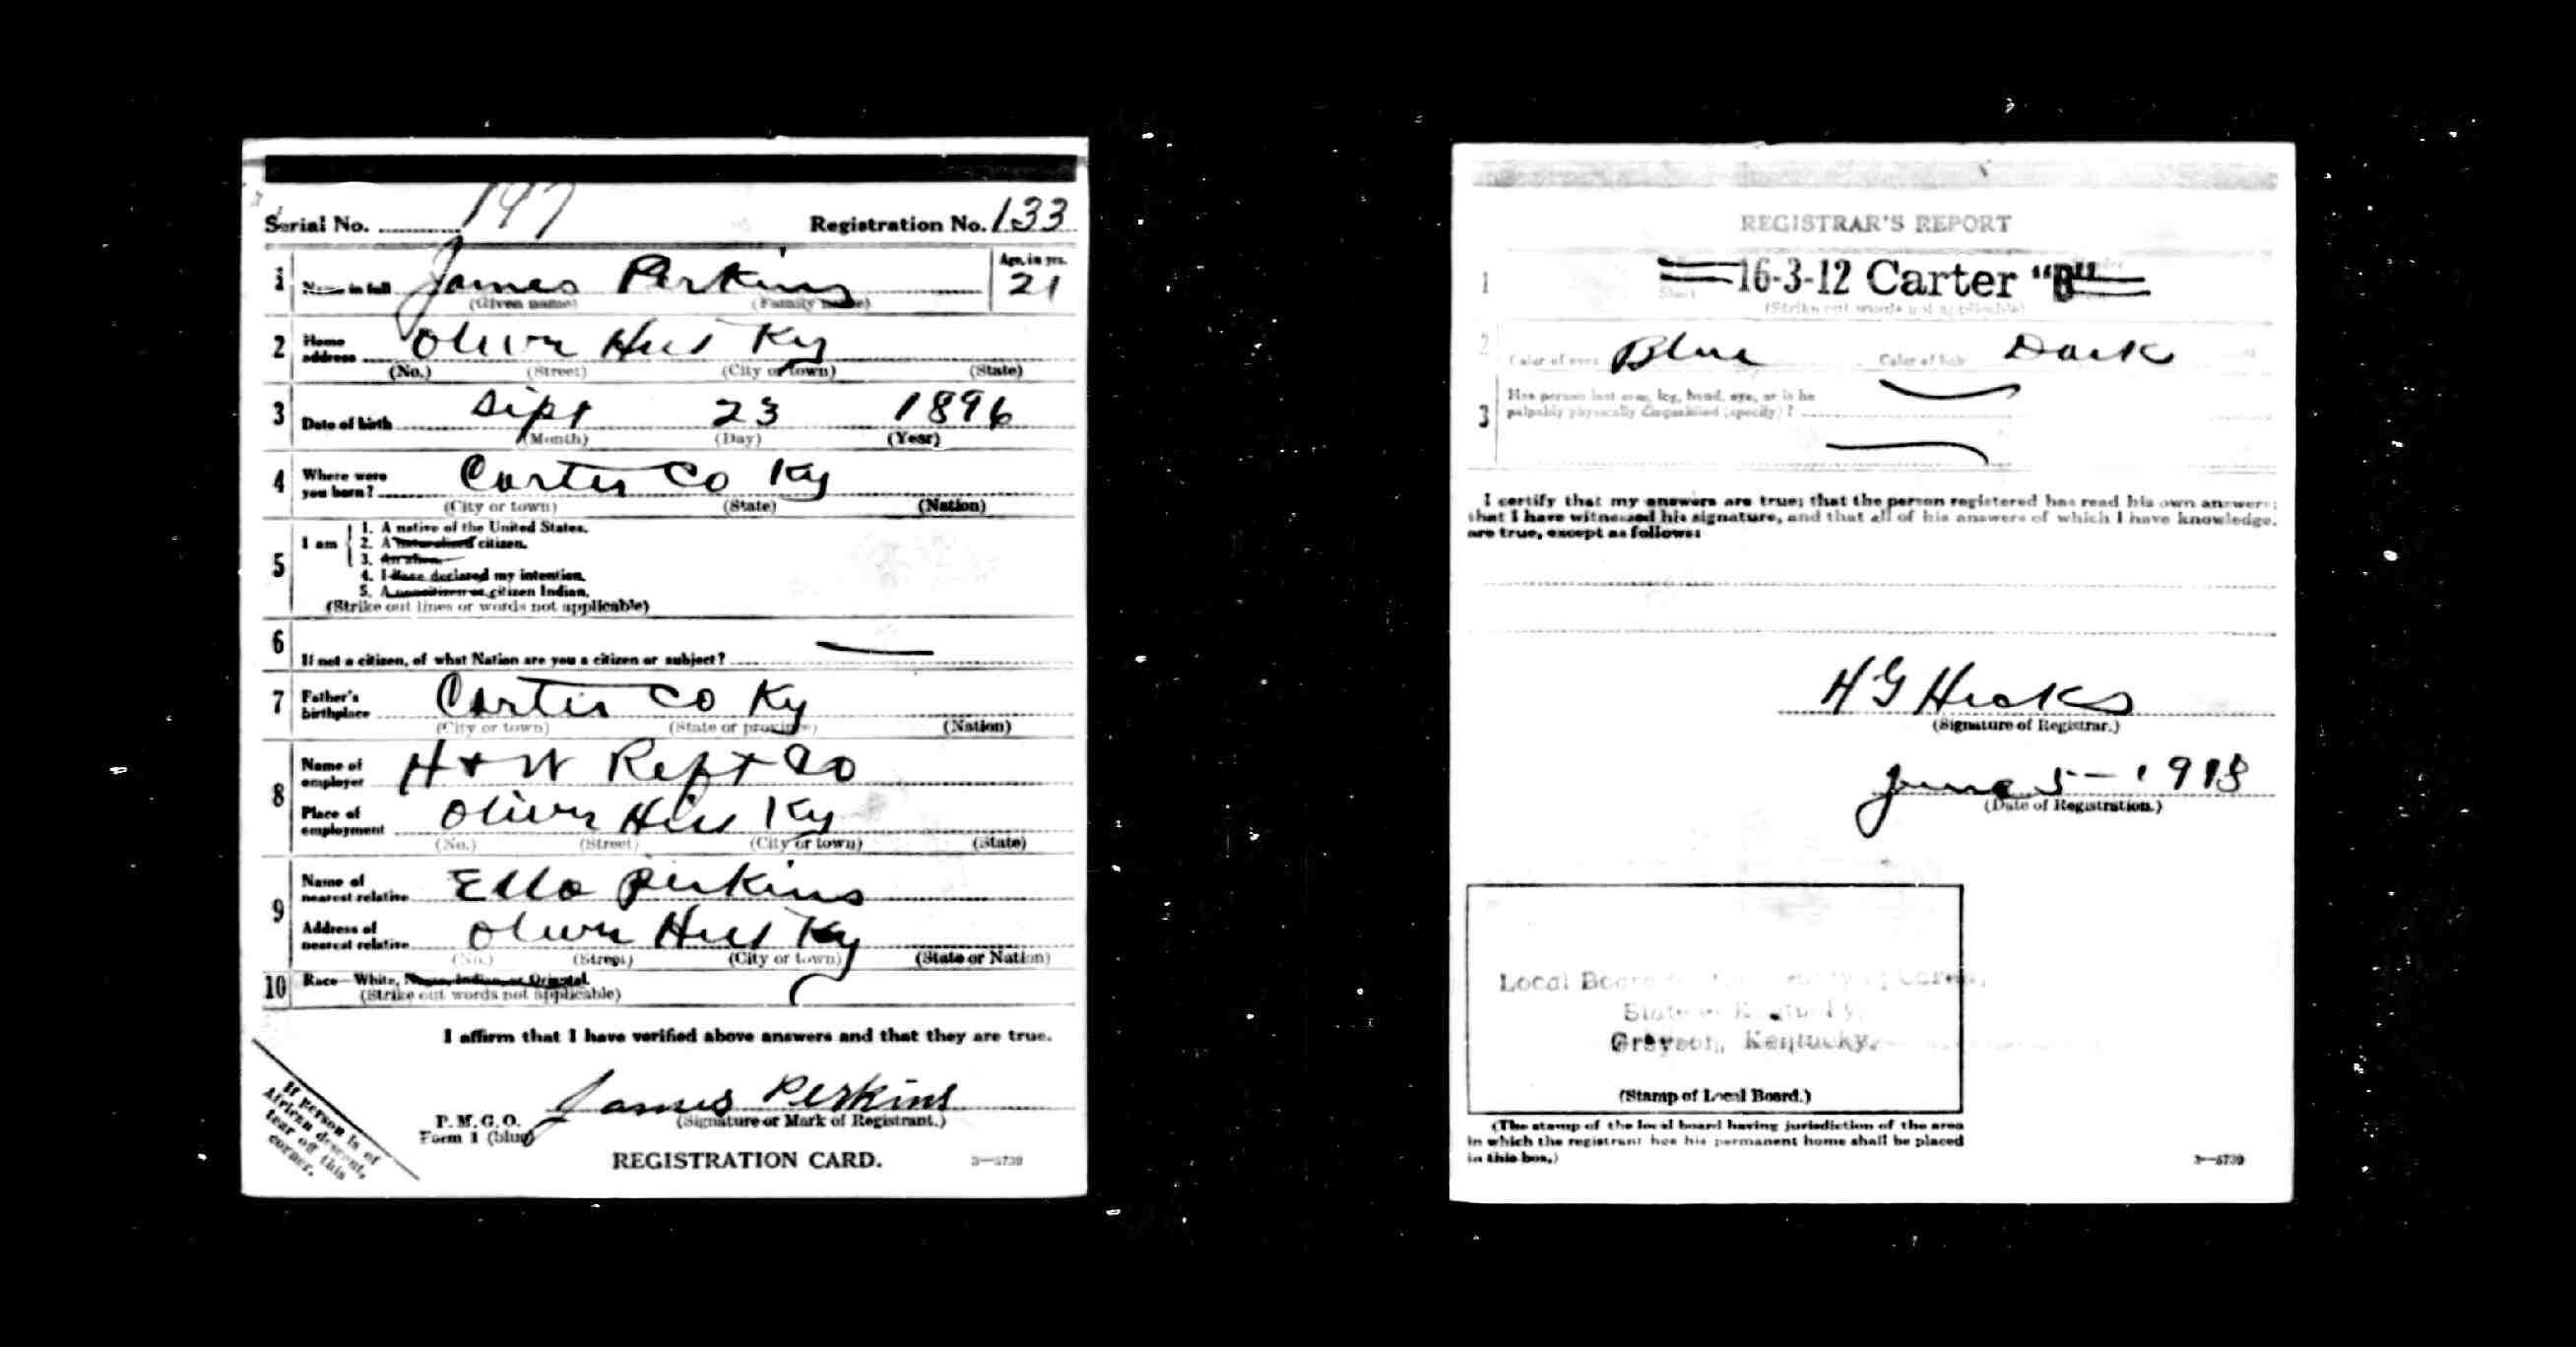 Serial No. 197 Registration No. 133
1 Name in full James Perkins Age, in yrs. 21
(Given name) (Family name)
2 Home address Olive Hill Ky
(No.) (Street) (City or town) (State)
3 Date of birth Sept 23 1896
(Month) (Day) (Year)
4 Where were you born? Carter Co Ky
(City or town) (State) (Nation)
5 I am
1. A native of the United States.
2. A naturalized citizen.
3. An alien.
4. I have declared my intention.
5. A noncitizen or citizen Indian.
(Strike out lines or words not applicable)
6 If not a citizen, of what Nation are you a citizen or subject?
7 Father's birthplace Carter Co Ky
(City or town) (State or province) (Nation)
8 Name of employer H + W Reft Co
Place of employment Olive Hill Ky
(No.) (Street) (City or town) (State)
9 Name of nearest relative Ella Perkins
Address of nearest relative Olive Hill Ky
(No.) (Street) (City or town) (State or Nation)
10 Race—White, Negro, Indian, or Oriental.
(Strike out words not applicable)
I affirm that I have verified above answers and that they are true.
James Perkins
(Signature or Mark of Registrant.)
P. M. G. O.
Form 1 (blue)
REGISTRATION CARD. 3—5739
If person is of
African descent,
tear off this
corner.
REGISTRAR'S REPORT
1 16-3-12 Carter "B"
(Strike out words not applicable)
2 Color of eyes Blue Color of hair Dark
3 Has person lost arm, leg, hand, eye, or is he
palpably physically disqualified (specify)?
I certify that my answers are true; that the person registered has read his own answers;
that I have witnessed his signature, and that all of his answers of which I have knowledge,
are true, except as follows:
H G Hicks
(Signature of Registrar.)
June 5 - 1918
(Date of Registration.)
Local Board
State of Kentucky,
Grayson, Kentucky.
(Stamp of Local Board.)
(The stamp of the local board having jurisdiction of the area
in which the registrant has his permanent home shall be placed
in this box.)
3—5739